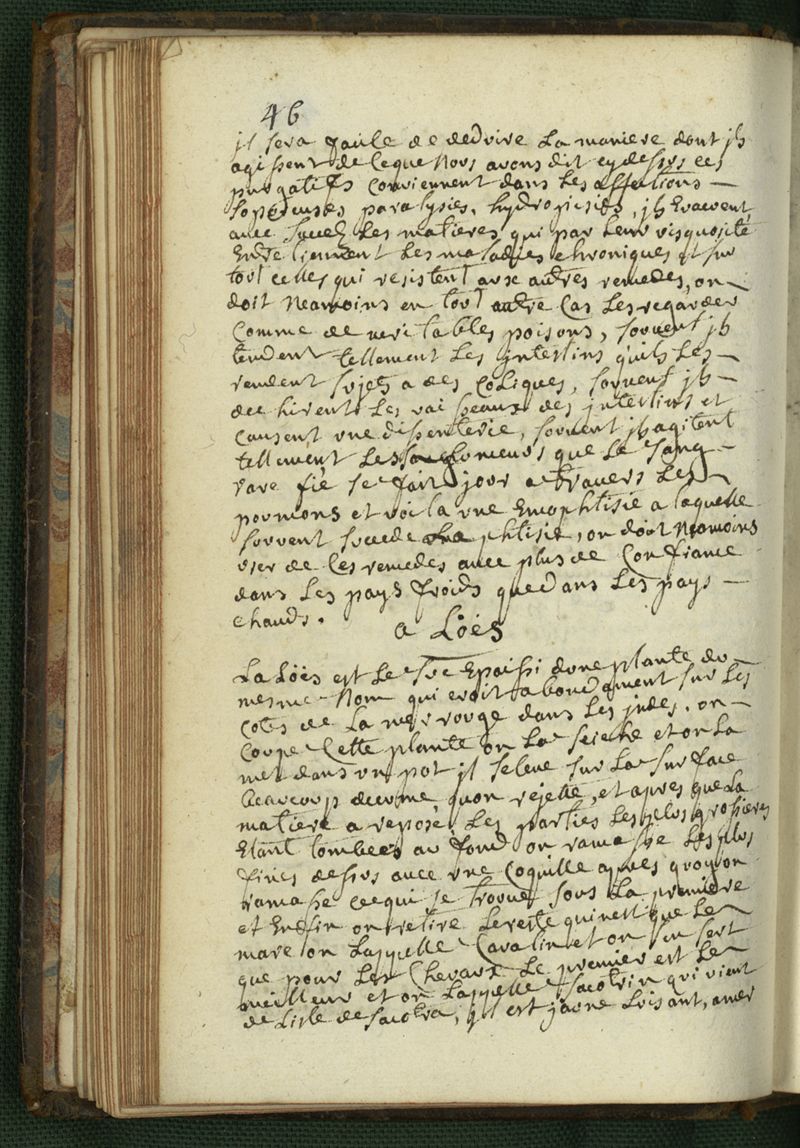 46
jl sera facile de deduire la maniere dont jls
agissent de ce que nous avons dit cy dessus ces
purgatifs conviennent dans les affections —
soporeuses paralysies, hydropisies, jls Evacuent
avec succez les matieres qui par leur visquosité
Entretiennent les maladies chroniques et sur
tout celles qui resistent aux autres remedes, on
doit neamoins en tout autre cas les regarder
comme de veritables poisons, souvent jls
tendent tellement les jntestins quils les —
rendent sujets a des coliques, souvent jls —
dechirent les vaisseaux des jntestins et
causent une dissenterie, souvent jls agitent
tellement les humeurs que le sang —
rarefié se fait jour a travers les
poumons et voila une Emophtisie a laquelle
souvent succede la phtisie, on doit neamoins
user de ces remedes avec plus de confiance
dans les pays froids que dans les pays —
chauds.
a Loés
La Loés est le suc Epaissi dune plante du
mesme nom qui croit abondament sur les
cotes de la mer rouge dans les jndes. on —
coupe cette plante on la seiche et on la
met dans un pot jl seleve sur la surface
beaucoup decume quon rejette, et apres que la
matiere a reposé les parties les plus grossieres
Etant tombees au fond on ramasse les plus
fines dessus avec une coquille apres quoy on
ramasse ce qui se trouve sous la premiere
et Enfin on retire le reste qui nest que le
marc on lappelle Cavalin et on sen sert
que pour les chevaux le premier est le
meilleur et on lappelle sucotrin qui vient
de lisle de sucotra, jl est jaune luisant, amer